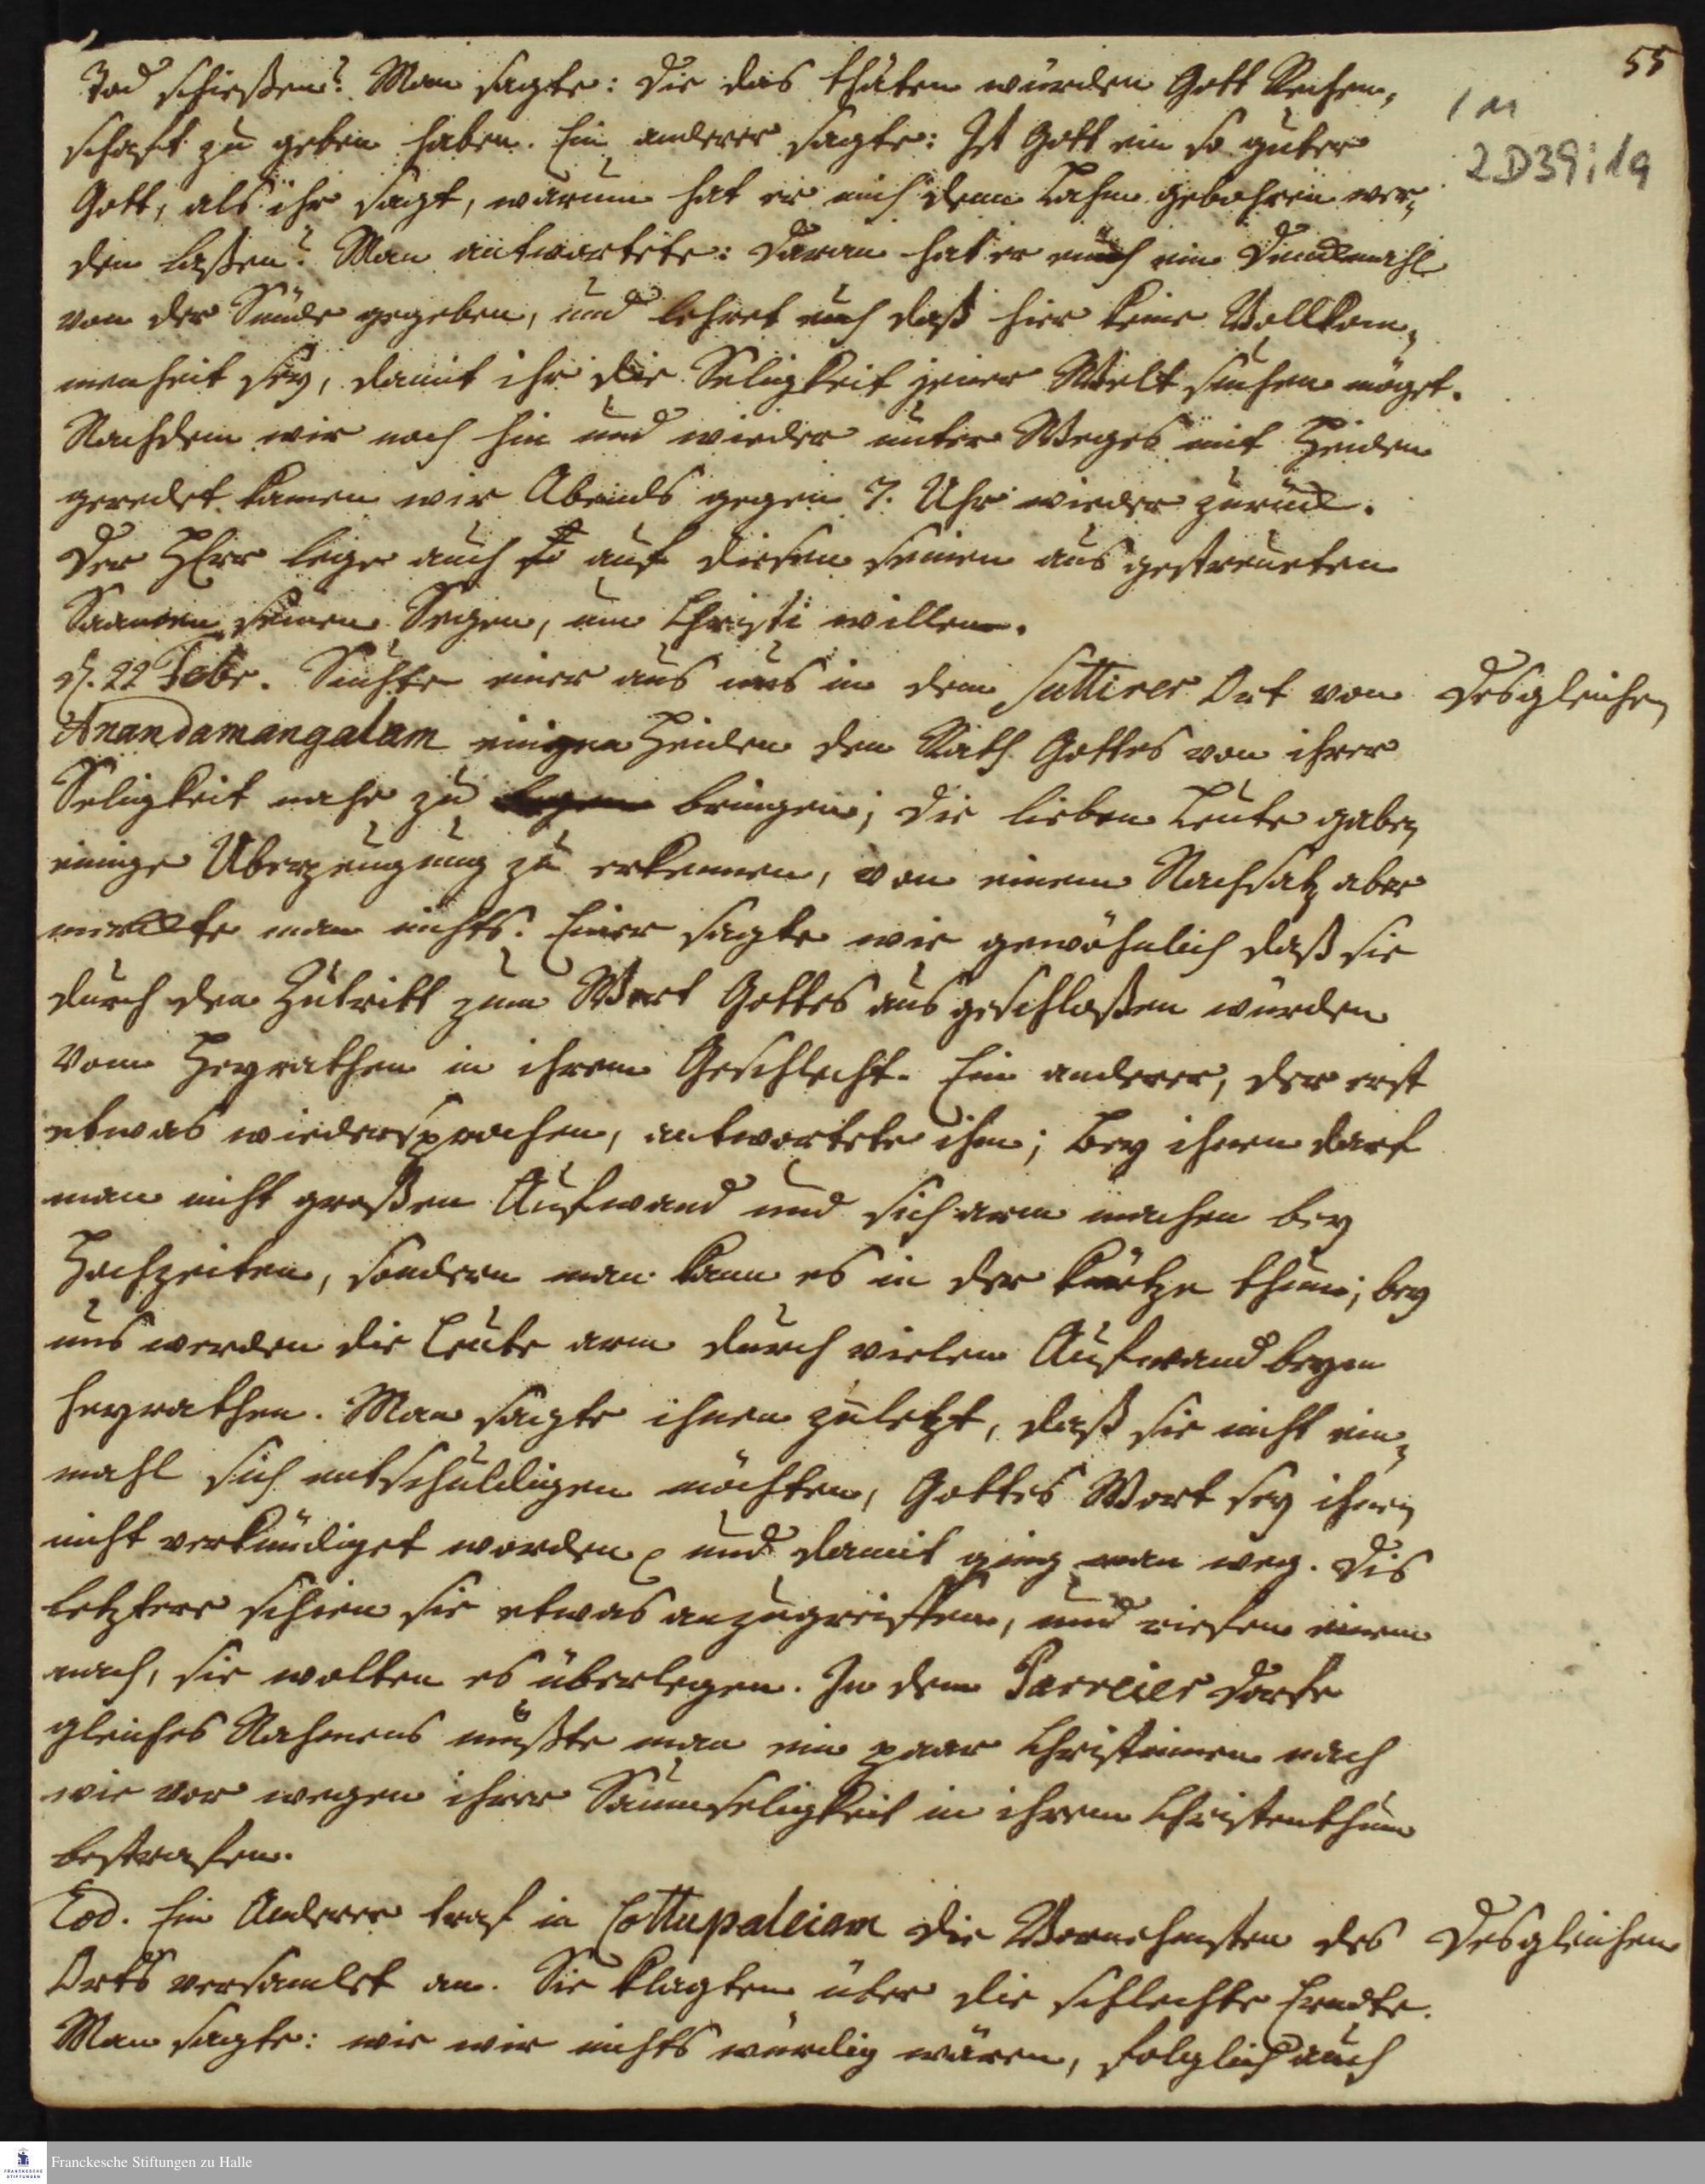 55
1 M
2 D39 : 1g
Tod schießen? Man sagte: die das thäten würden Gott Rechen,
schaft zu geben haben. Ein anderer sagte: Ist Gott ein so guter
Gott, als ihr sagt, warum hat er mich denn Lahm gebohren wer,
den laßen? Man antwortete: daran hat er euch ein Denckmahl
von der Sünde gegeben, und lehret euch daß hier keine Vollkom,
menheit sey, damit ihr die Seligkeit jener Welt suchen möget.
Nachdem wir noch hin und wieder unter Weges mit Heiden
geredet kamen wir Abends gegen 7. Uhr wieder zurück.
Der HErr lege auch auf diesen seinen ausgestreueten
Saamen seinen Segen, um Christi willen.
d. 22 Febr. Suchte einer aus uns in dem Suttirer Ort von
Desgleichen
Anandamangalam einigen Heiden den Rath Gottes von ihrer
Seligkeit nahe zu bringen; die lieben Leute gaben
einige Überzeugung zu erkennen, von einem Nachsatz aber
merckte man nichts. Einer sagte wie gewöhnlich daß sie
durch den Zutritt zum Wort Gottes ausgeschloßen würden
vom Heyrathen in ihrem Geschlecht. Ein anderer, der erst
etwas wiedersprochen, antwortete ihm; bey ihnen darf
man nicht großen Aufwand und sich arm machen bey
Hochzeiten, sondern man kann es in der Kürtze thun; bey
uns werden die Leute arm durch vielen Aufwand beym
heyrathen. Man sagte ihnen zuletzt, daß sie nicht ein,
mahl sich entschuldigen möchten, Gottes Wort sey ihnen
nicht verkündiget worden und damit ging man weg. Dis
letztere schien sie etwas anzugreiffen, und riefen einem
nach, sie wolten es überlegen. In dem Parreier Dorfe
gleiches Nahmens mußte man ein paar Christinnen nach
wie vor wegen ihrer Saumseligkeit in ihrem Christenthum
bestrafen.
Eod. Ein Anderer traf in Cottupaleiam die Vornehmsten des
Desgleichen
Orts versamlet an. Sie klagten über die schlechte Erndte.
Man sagte: wie wir nichts würdig wären, folglich auch
Franckesche Stiftungen zu Halle